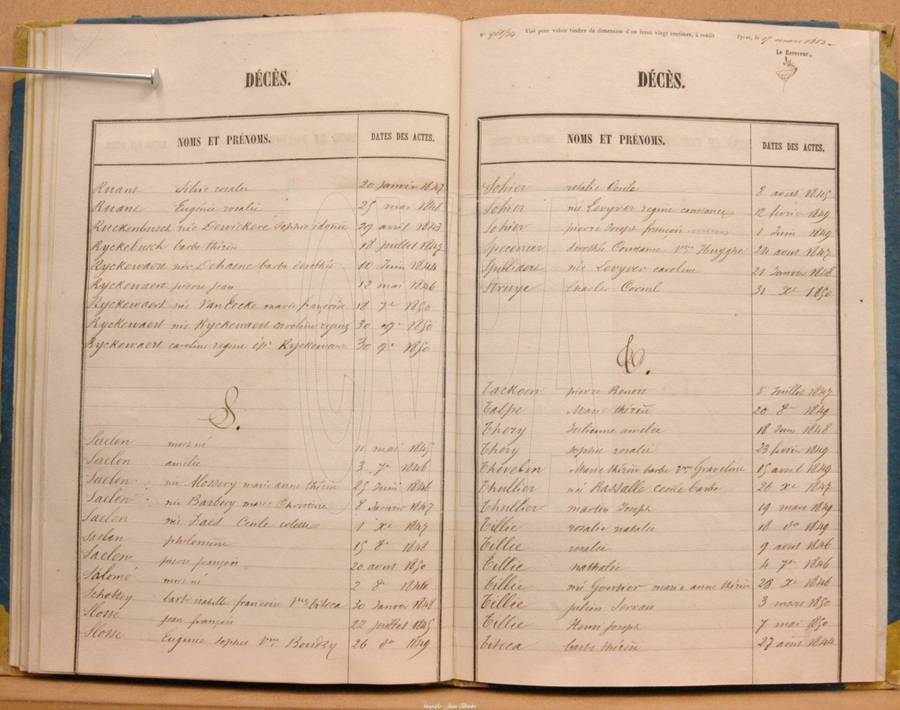 DÉCÈS.
NOMS ET PRÉNOMS. DATES DES ACTES.
Ruant Silvie rosalie 20 janvier 1847
Ruant Eugénie rosalie 25 mai 1848
Ruckenbusch née Dewickere Sophie idonie 29 avril 1843
Ryckebusch barbe thérèse 18 juillet 1847
Ryckewaert née Dehaene barbe dorothée 10 Juin 1844
Ryckewaert pierre jean 12 mai 1846
Ryckewaert née Van Eecke marie françoise 18 7re 1850
Ryckewaert née Ryckewaert caroline regine 30 9re 1850
Ryckewaert caroline regine épse Ryckewaert 30 9re 1850
S.
Saelen mort né 11 mai 1845
Saelen amélie 3 7re 1846
Saelen née Alossery marie anne thérèse 25 Juin 1846
Saelen née Barbery marie Christine 8 Janvier 1847
Saelen née Zaes Cecile colette 1 Xe 1847
Saelen philomène 15 8re 1848
Saelen pierre françois 20 aout 1850
Salomé mort né 2 8re 1844
Schottey barbe isabelle françoise Vve titeca 30 Janvier 1848
Slosse jean françois 22 juillet 1845
Slosse Eugénie sophie Vve Boudry 26 do 1849
Visé pour valoir timbre de dimension d'un franc vingt centimes, à crédit
Ypres, le mars 1853
Le Receveur.
DÉCÈS.
NOMS ET PRÉNOMS. DATES DES ACTES.
Sohier rosalie Cecile 8 aout 1845
Sohier née Levyver regine constance 12 février 1849
Sohier pierre Joseph françois 1 Juin 1849
Specenier dorothée Constance Vve Huyghe 24 aout 1847
Spillaert née Levyver caroline 21 Janvier 1848
Struye Charles Cornil 31 Xe 1850
T.
Tackoen pierre Benoit 5 Juillet 1847
Talpe Marie thérèse 20 8re 1849
Thery Julienne amelie 18 Juin 1848
Thery sophie rosalie 23 février 1849
Thevelin Marie thérèse barbe Vve Graveline 15 avril 1849
Thullier née Rassalle cecile barbe 26 Xe 1847
Thullier martin Joseph 19 mars 1849
Tillie rosalie natalie 18 do 1849
Tillie rosalie 9 aout 1846
Tillie nathalie 4 7re 1846
Tillie née Gontier marie anne thérèse 28 Xe 1846
Tillie julien Servais 3 mars 1850
Tillie Henri Joseph 7 mai 1850
Titeca barbe thérèse 27 aout 1844